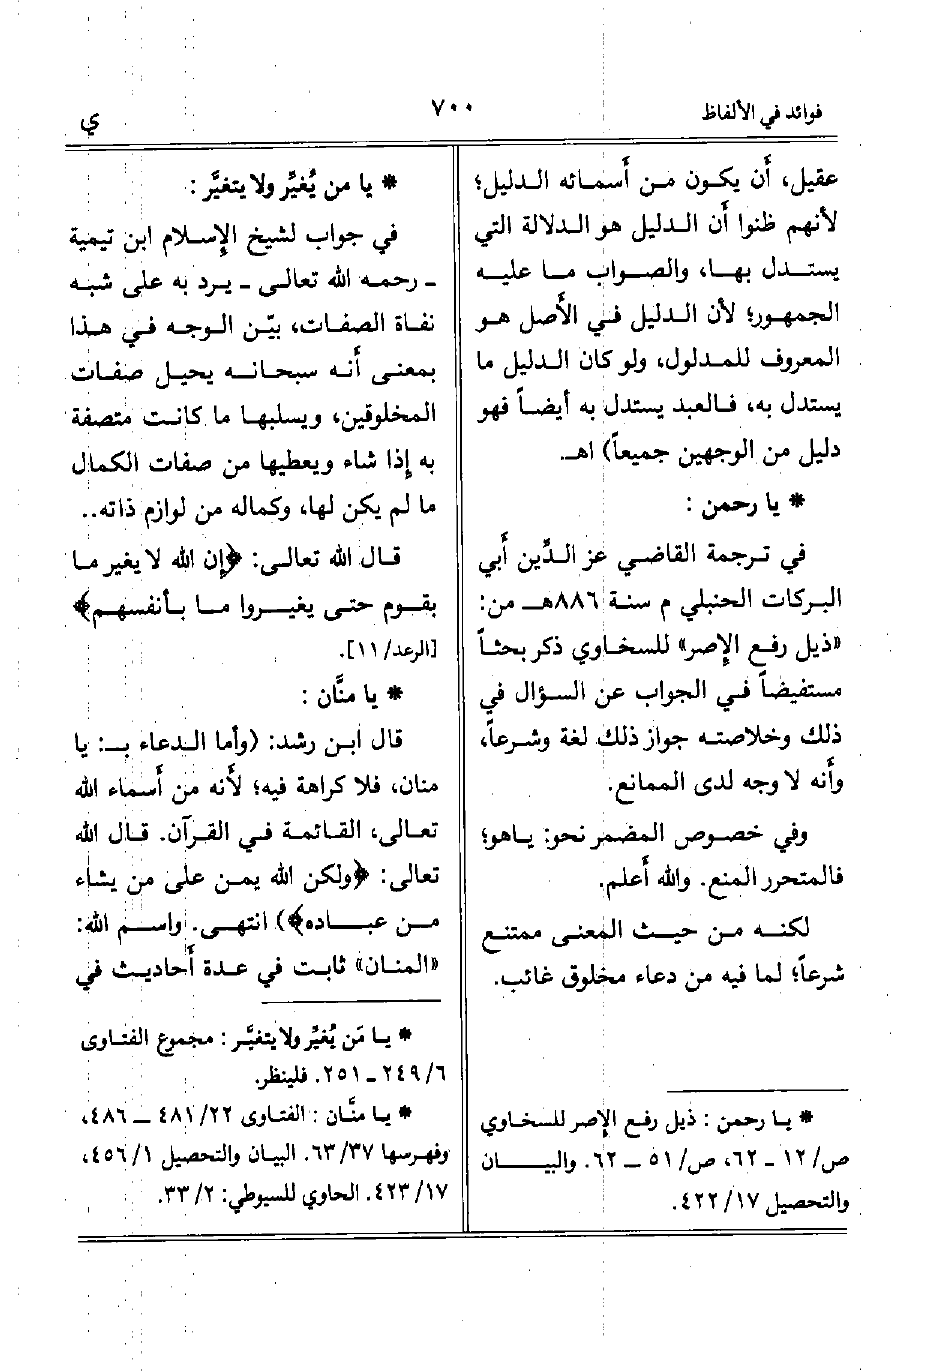 فوائد في الألفاظ
٧٠٠
ي
عقيل، أن يكون من أسمائه الدليل؛
لأنهم ظنوا أن الدليل هو الدلالة التي
يستدل بها، والصواب ما عليه
الجمهور؛ لأن الدليل في الأصل هو
المعروف للمدلول، ولو كان الدليل ما
يستدل به، فالعبد يستدل به أيضاً فهو
دليل من الوجهين جميعاً) اهـ.
* يا رحمن :
في ترجمة القاضي عز الدَّين أبي
البركات الحنبلي م سنة ٨٨٦هـ من:
«ذيل رفع الإصر» للسخاوي ذكر بحثاً
مستفيضاً في الجواب عن السؤال في
ذلك وخلاصته جواز ذلك لغة وشرعاً،
وأنه لا وجه لدى الممانع.
وفي خصوص المضمر نحو: ياهو؛
فالمتحرر المنع. والله أعلم.
لكنه من حيث المعنى ممتنع
شرعاً؛ لما فيه من دعاء مخلوق غائب.
* يا رحمن : ذيل رفع الإصر للسخاوي
ص/١٢ - ٦٢، ص/ ٥١ - ٦٢. والبيان
والتحصيل ١٧/ ٤٢٢.
* يا من يُغيِّر ولا يتغيَّر :
في جواب لشيخ الإسلام ابن تيمية
- رحمه الله تعالى - يرد به على شبه
نفاة الصفات، بيّن الوجه في هذا
بمعنى أنه سبحانه يحيل صفات
المخلوقين، ويسلبها ما كانت متصفة
به إذا شاء ويعطيها من صفات الكمال
ما لم يكن لها، وكماله من لوازم ذاته..
قال الله تعالى: ﴿إن الله لا يغير ما
بقوم حتى يغيروا ما بأنفسهم﴾
[الرعد/ ١١].
* يا منَّان :
قال ابن رشد: (وأما الدعاء بـ: يا
منان، فلا كراهة فيه؛ لأنه من أسماء الله
تعالى، القائمة في القرآن. قال الله
تعالى: ﴿ولكن الله يمن على من يشاء
من عباده﴾) انتهى. واسم الله:
«المنان» ثابت في عدة أحاديث في
* يا مَن يُغيِّر ولا يتغيَّر : مجموع الفتاوى
٦/ ٢٤٩ - ٢٥١. فلينظر.
* يا منَّان : الفتاوى ٢٢/ ٤٨١ - ٤٨٦،
وفهرسها ٣٧/ ٦٣. البيان والتحصيل ١/ ٤٥٦،
١٧/ ٤٢٣. الحاوي للسيوطي: ٢/ ٣٣.